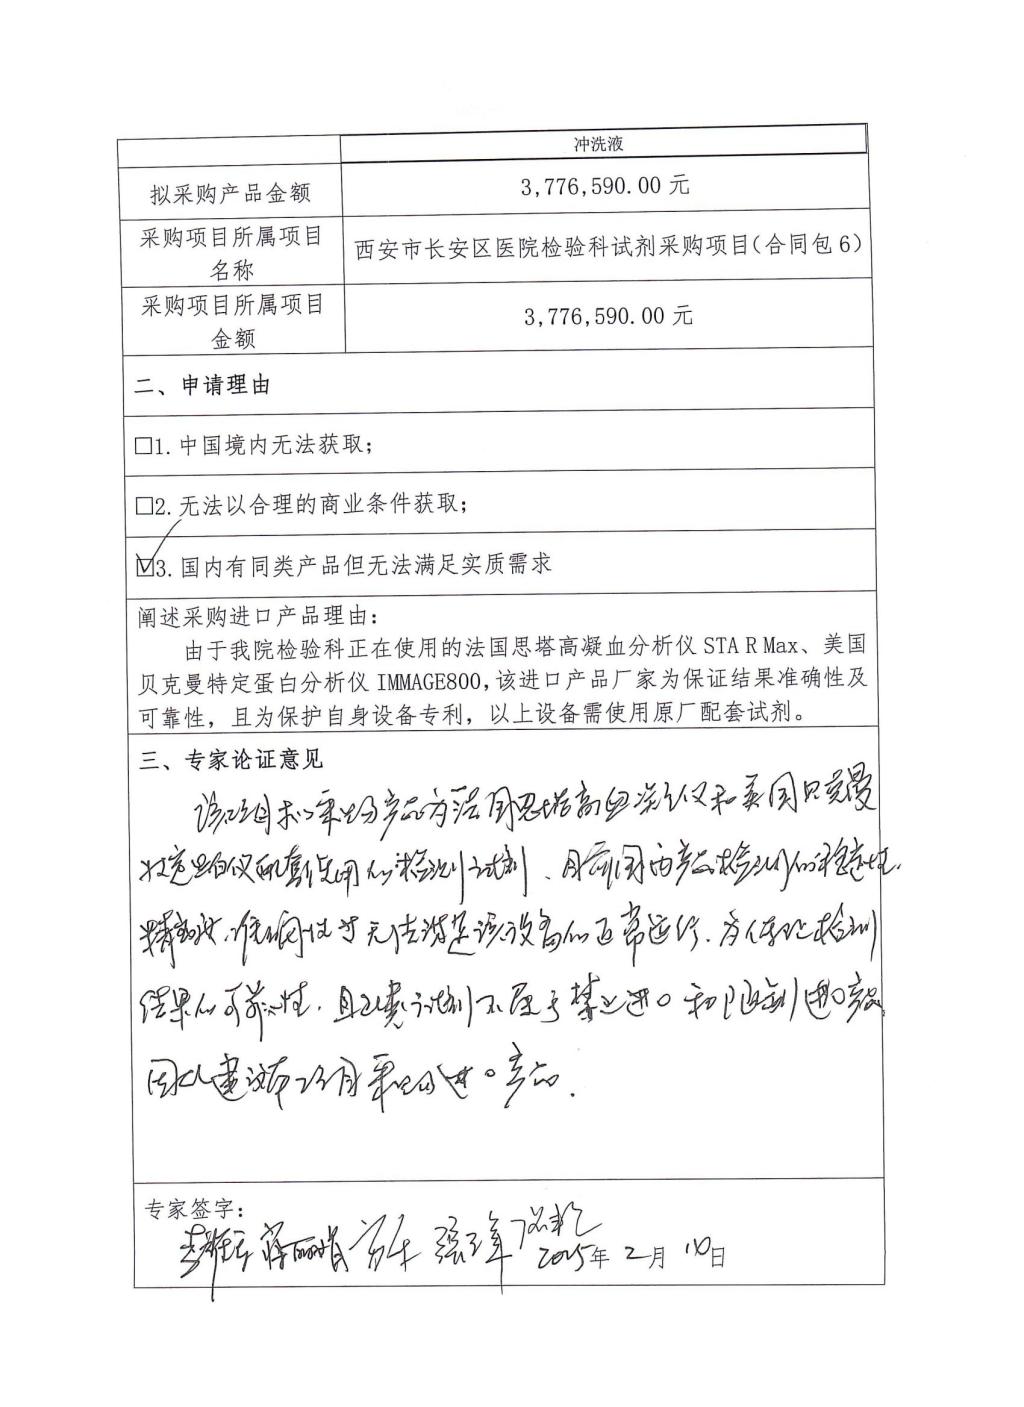 冲洗液
拟采购产品金额
3,776,590.00 元
采购项目所属项目
名称
西安市长安区医院检验科试剂采购项目(合同包6)
采购项目所属项目
金额
3,776,590.00 元
二、申请理由
□1.中国境内无法获取;
□2.无法以合理的商业条件获取;
☑3.国内有同类产品但无法满足实质需求
阐述采购进口产品理由:
由于我院检验科正在使用的法国思塔高凝血分析仪 STA R Max、美国
贝克曼特定蛋白分析仪 IMMAGE800,该进口产品厂家为保证结果准确性及
可靠性，且为保护自身设备专利，以上设备需使用原厂配套试剂。
三、专家论证意见
该项目拟采购产品为法国思塔高血凝仪和美国贝克曼
特定蛋白仪配套使用的检测试剂、目前国内产品检测的稳定性、
精密度、准确性等无法满足该设备的正常运行、为保证检测
结果的可靠性，且这类试剂不属于禁止进口和限制进口产品
因此建议本项目采购进口产品.
专家签字:
2025年 2月 10日